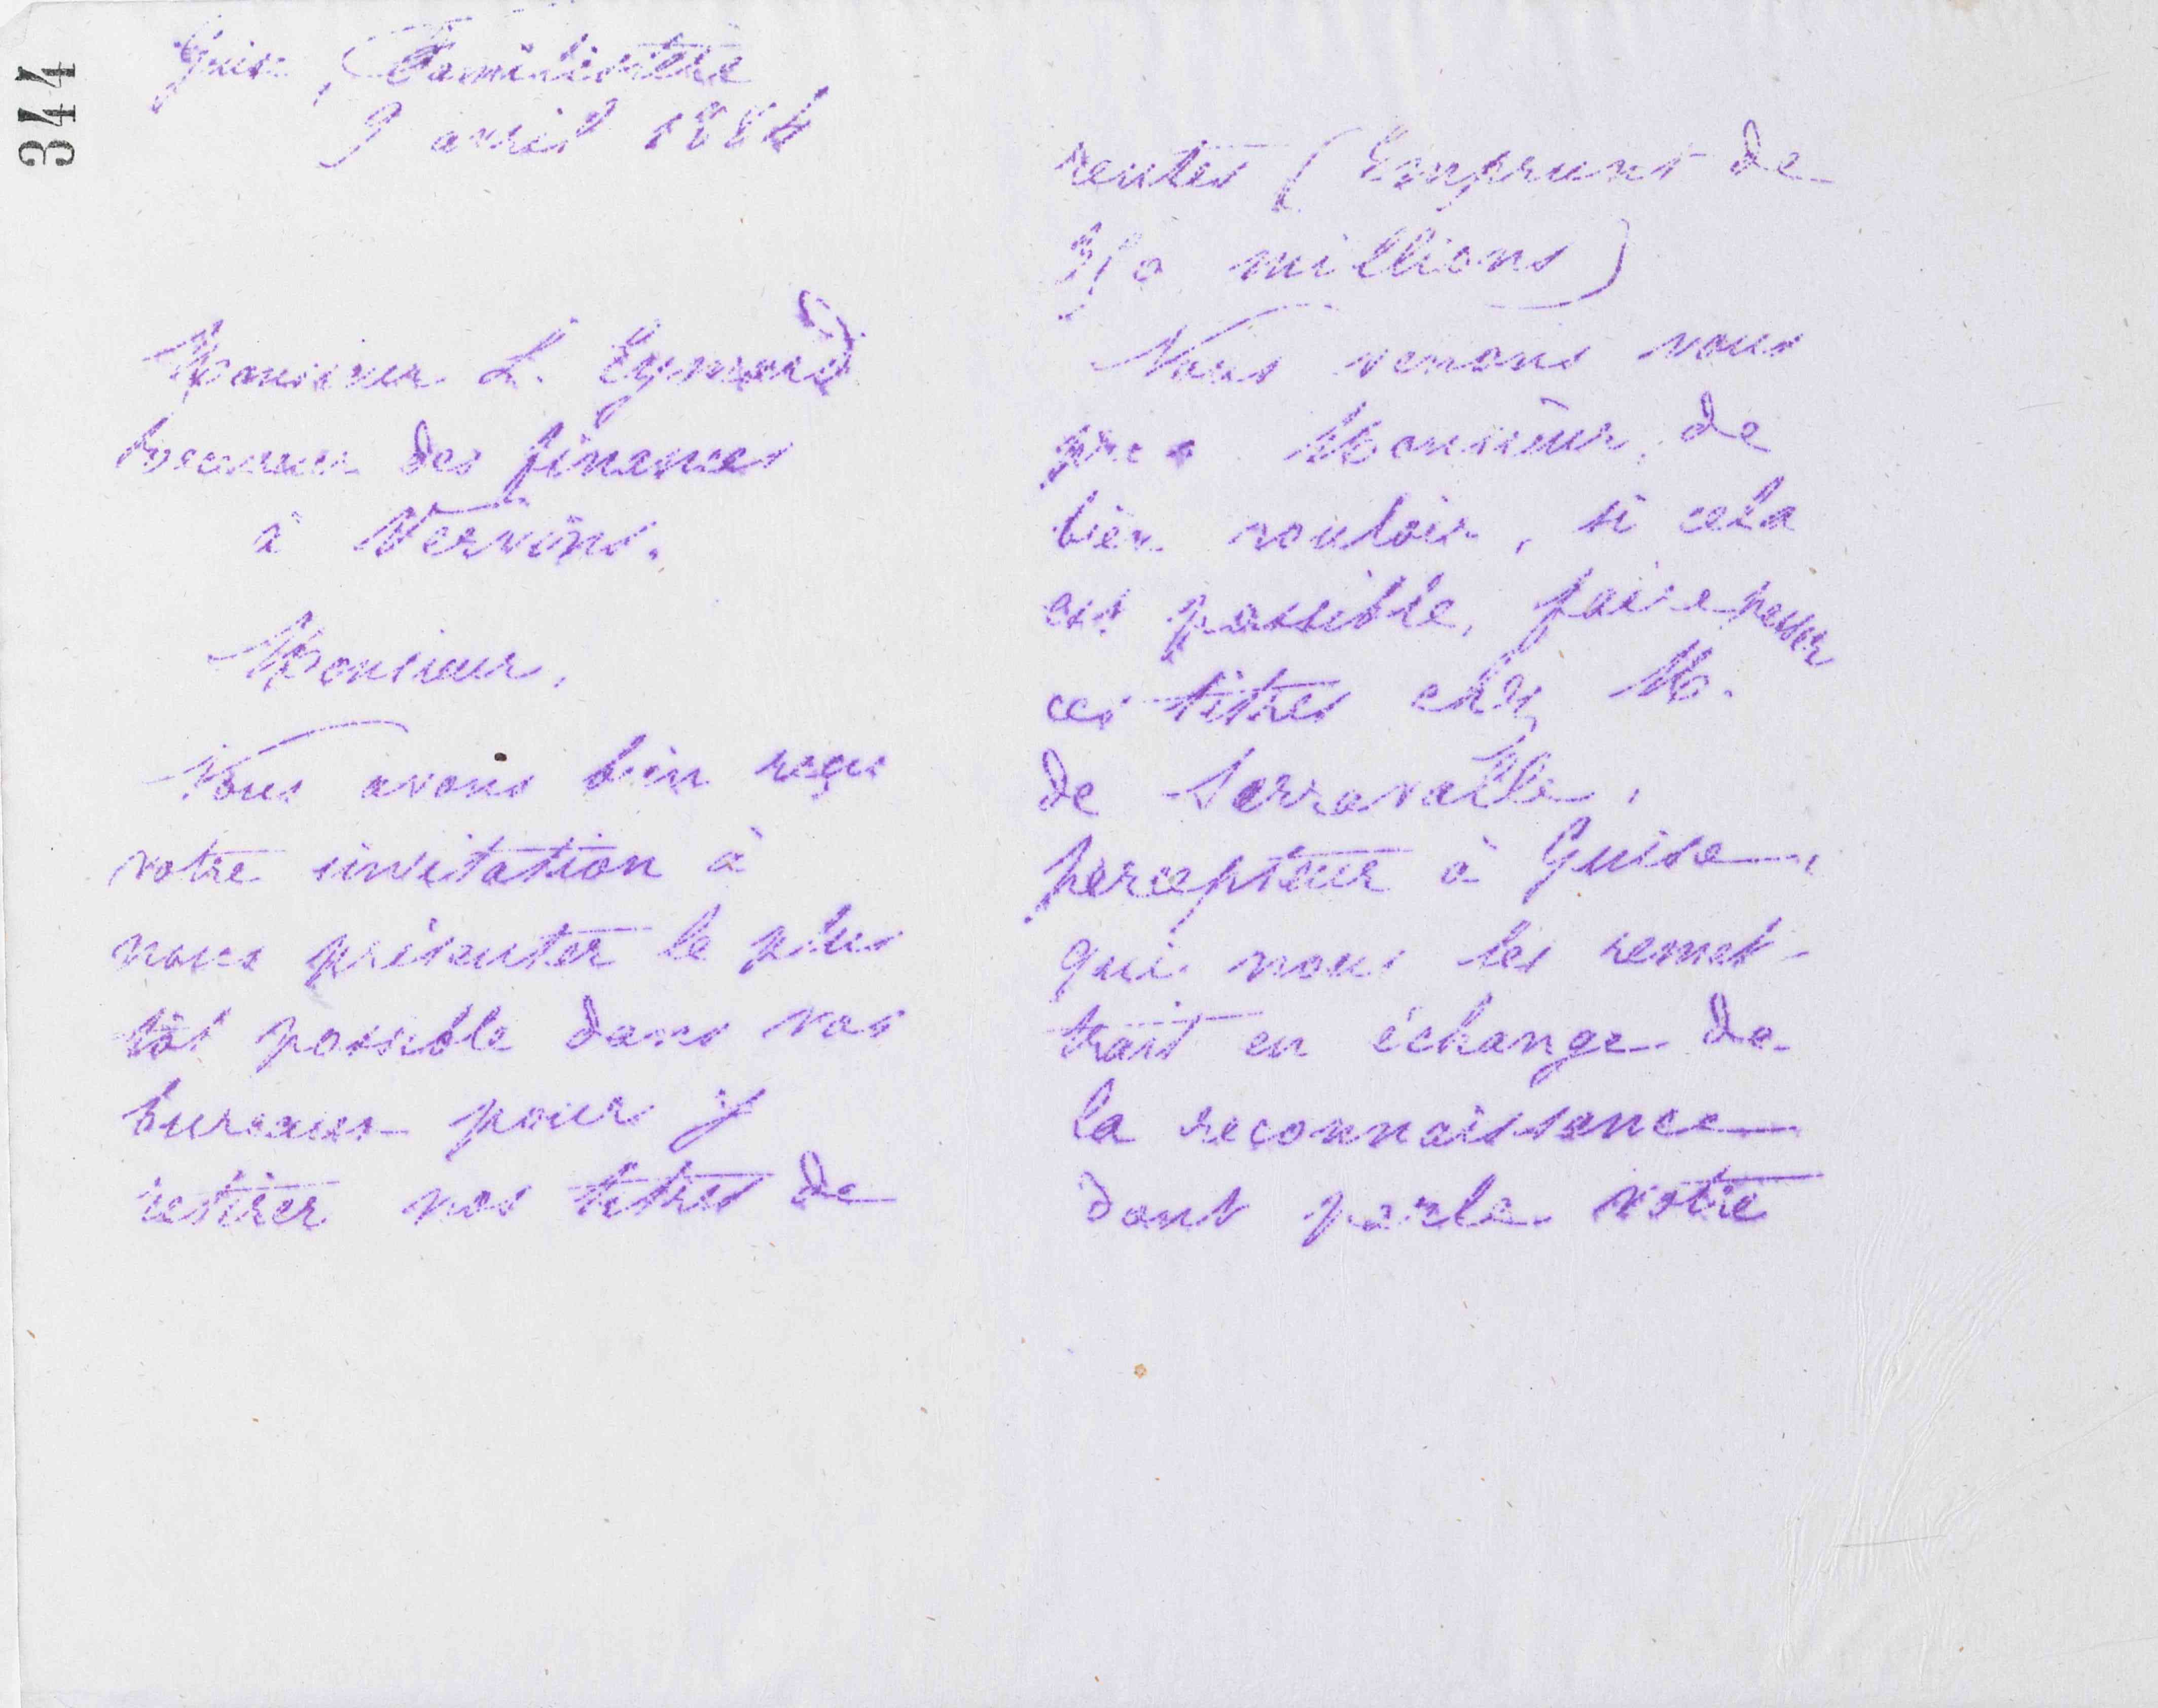 344
Guise, Familistère
9 avril 1884
Monsieur L. Eymard
Receveur des finances
à Vervins.
Monsieur,
Nous avons bien reçu
votre invitation à
nous présenter le plus
tôt possible dans vos
bureaux pour y
retirer nos titres de
rentes (Emprunt de
350 millions)
Nous venons vous
prier Monsieur, de
bien vouloir, si cela
est possible, faire passer
ces titres chez M.
de Serravalle,
percepteur à Guise,
qui nous les remet-
trait en échange de
la reconnaissance
dont parle votre